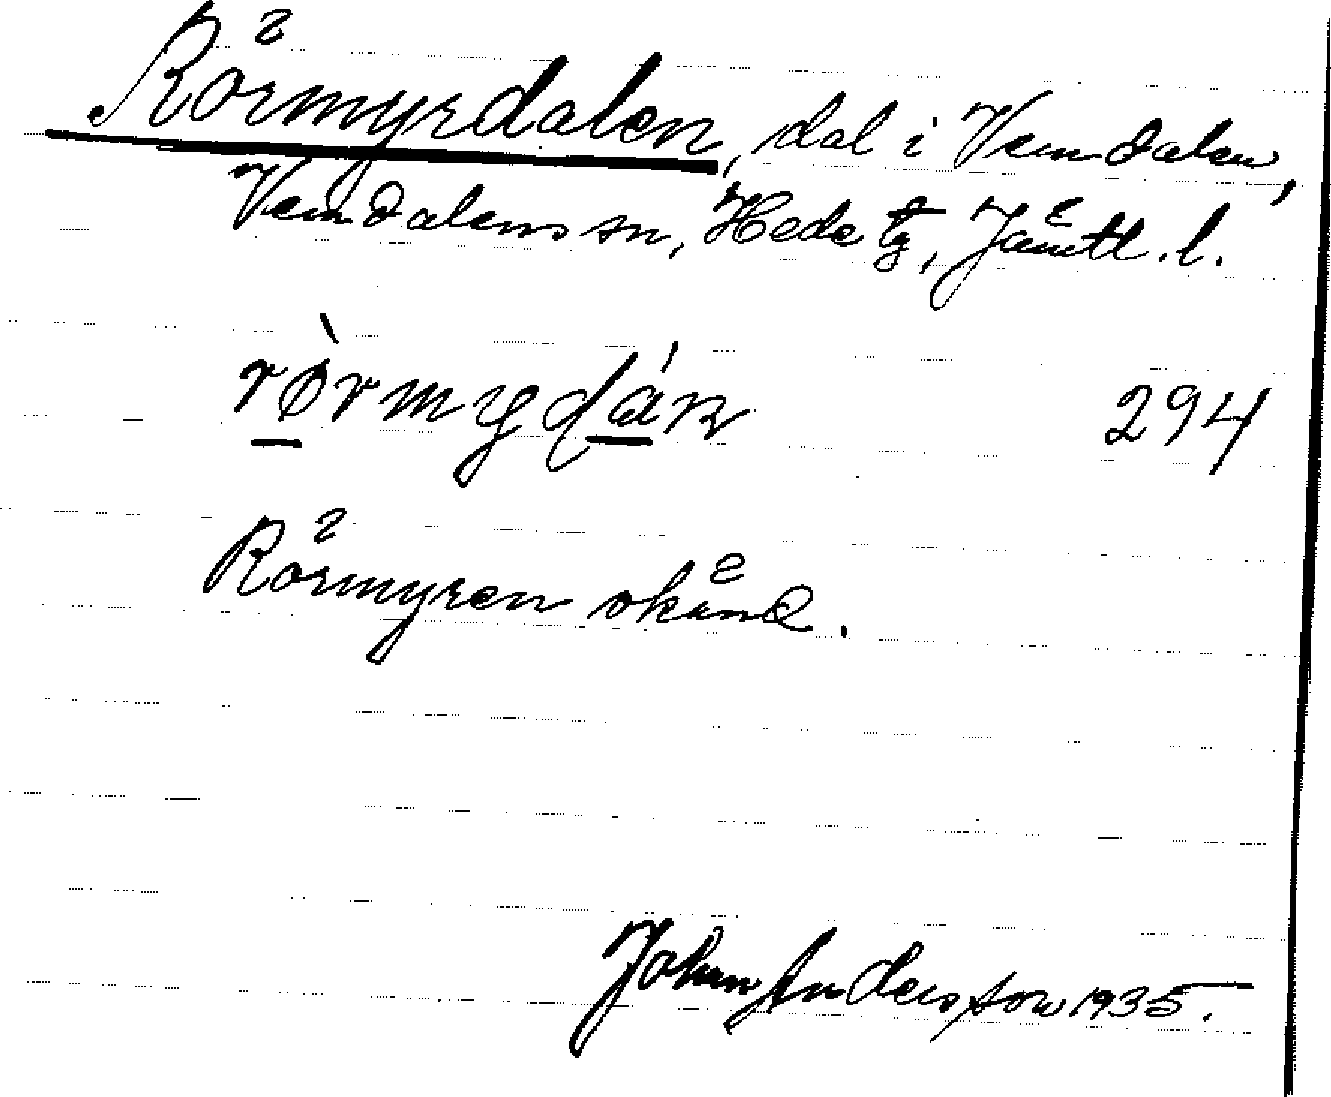 Rörmyrdalen, dal i Vemdalen,
Vemdalens sn, Hede tg, Jämtl. l.
rø̀rmydák 294
Rörmyren okänd.
John Andersson 1935.